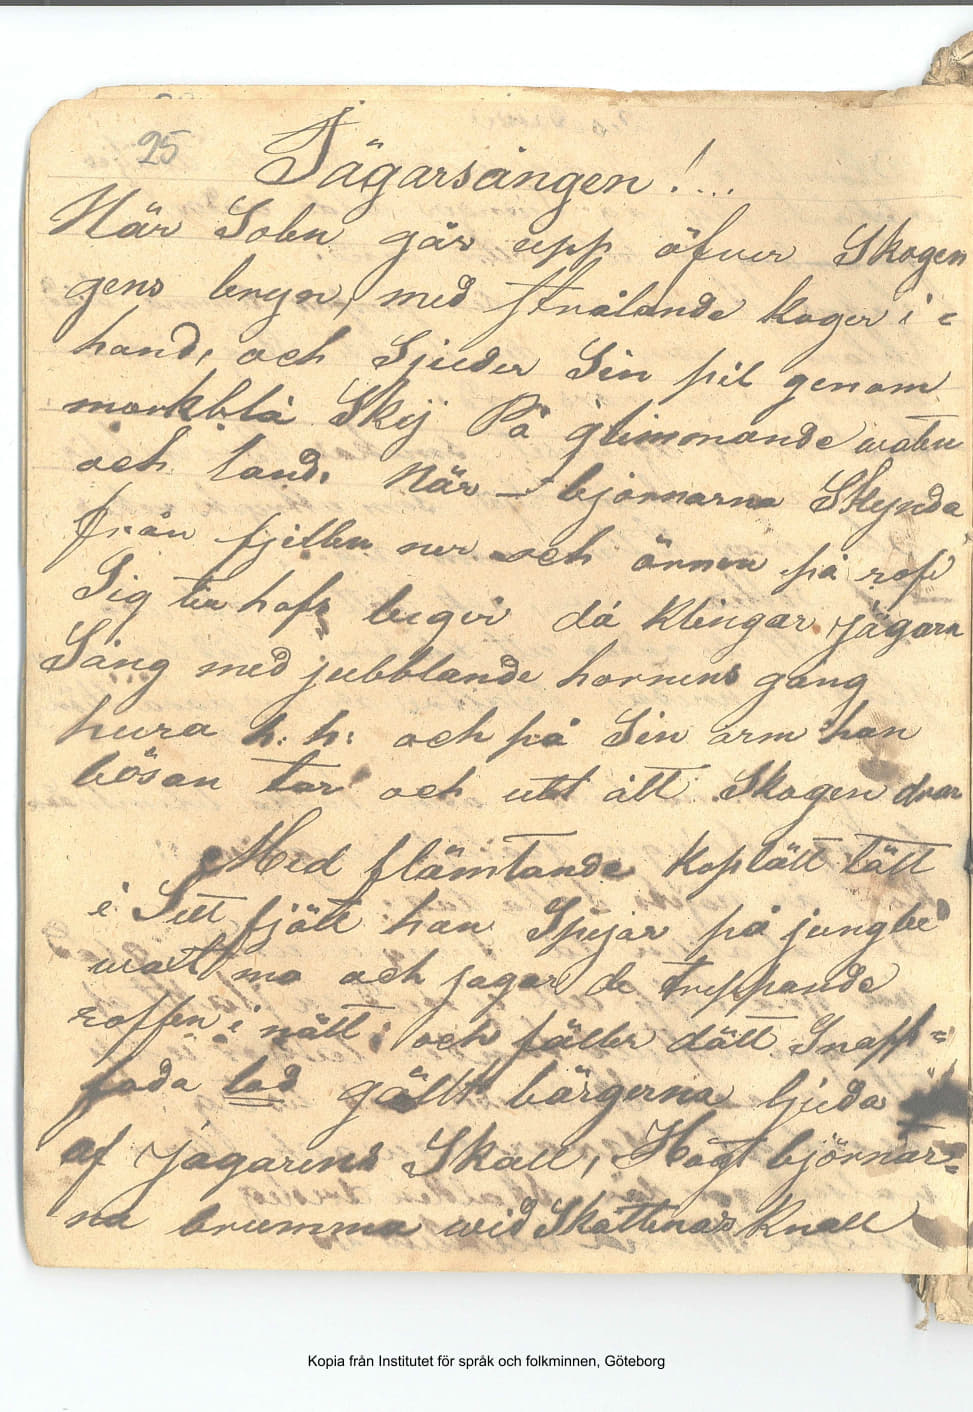 25
Jägarsången!...
När Solen går upp öfver Skogen
gens bryn, med strålande koger i
hand, och Sjuder Sin pil genom
morkblå Skij På glimmande waten
och land. När björnarna Skynda
från fjellen ner och örnen på rof
Sig till hafs beger då Klingar jägarn
Sång med jubblande hornens gång
hura h: h: och på Sin arm han
bösan tar och utt ått Skogen drar
Med flämtande Koplätt tätt
i Sitt fjätt han Spejar på jungbe
watt mo och jagar de trippande
roffen i nätt och fäller dätt Snapp=
fada lod gällt bärgerna ljuda
af jagarens Skall, Högt björnar=
na brumma wid Skåttenas Knall
Kopia från Institutet för språk och folkminnen, Göteborg